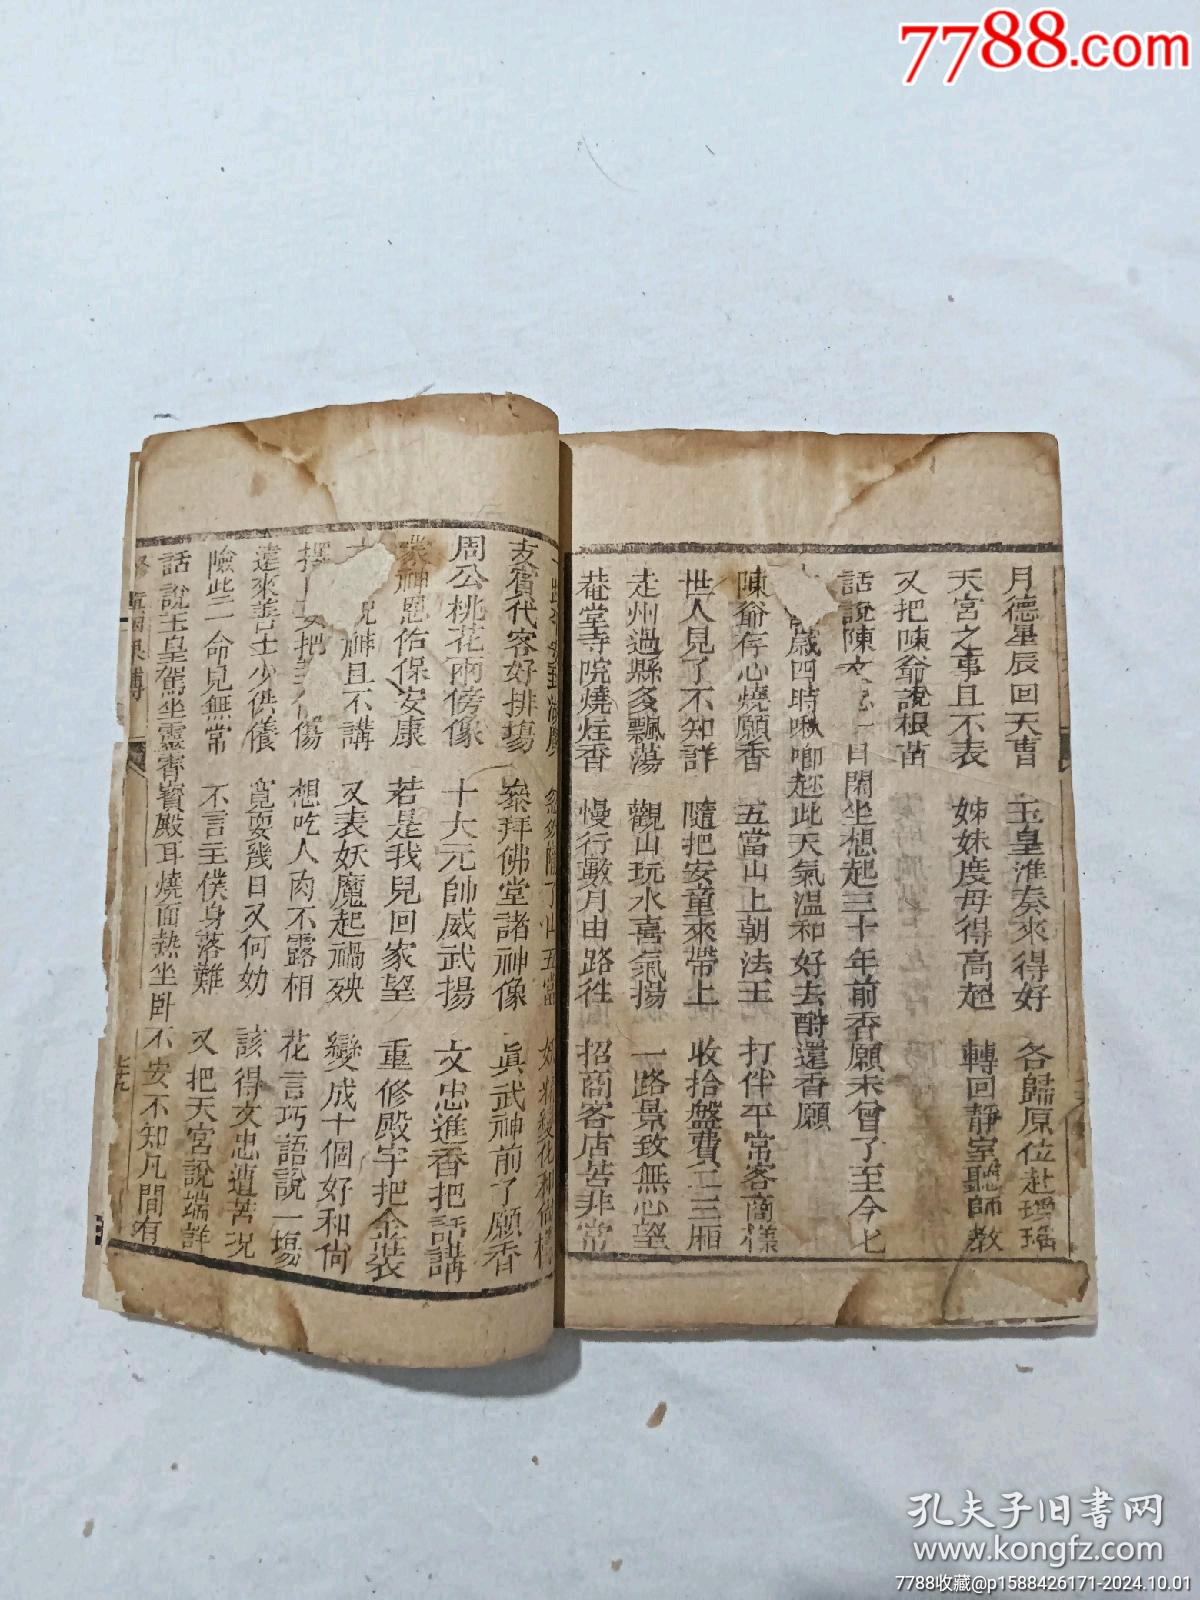 7788.com
月德星辰回天曹 玉皇準奏來得好 各歸原位赴瑤
天宮之事且不表 姊妹度母得高超 轉回靜室聽師教
又把陳爺說根苗
話說陳文忠一日閑坐想起三十年前香願未曾了至今七
歲四時啾唧趂此天氣溫和好去酧還香願
陳爺存心燒願香 五當山上朝法王 打伴平常客商樣
世人見了不知詳 隨把安童來帶上 收拾盤費二三廂
走州過縣多飄蕩 觀山玩水喜氣揚 一路景致無心望
菴堂寺院燒炷香 慢行數月由路徃 招商客店苦非常
五當
支賓代客好排場 叅拜佛堂諸神像 眞武神前了願香
周公桃花兩傍像 十大元帥威武揚 文忠進香把話講
神恩佑保安康 若是我兒回家望 重修殿宇把金裝
且不講 又表妖魔起禍殃 變成十個好和尙
把 傷 想吃人肉不露相 花言巧語說一塲
遠來善士少供儀 寬耍幾日又何妨 該得文忠遭苦况
險些一命見無常 不言主僕身落難 又把天宮說端詳
話說玉皇駕坐靈霄寳殿耳燒面熱坐卧不安不知凡間有
孔夫子旧書网
www.kongfz.com
7788收藏@p1588426171-2024.10.01